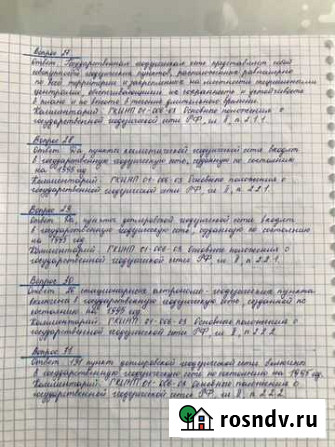 Вопрос 27
Ответ. Государственная геодезическая сеть представляет собой
совокупность геодезических пунктов, расположенных равномерно
по всей территории и закрепленных на местности
центрами, обеспечивающими их сохранность и устойчивость
в плане и по высоте в течение длительного времени.
Комментарий. ГКИНП 01-006-03 Основные положения о
государственной геодезической сети РФ, п. 2.1.1.
Вопрос 28
Ответ. Да, пункты космической геодезической сети входят
в государственную геодезическую сеть, созданную по состоянию
на 1995 год
Комментарий. ГКИНП 01-006-03 Основные положения о
государственной геодезической сети РФ, п. 2.2.1.
Ответ. Да, пункты доплеровской геодезической сети входят
в государственную геодезическую сеть, созданную по состоянию
на 1995 год
Комментарий. ГКИНП 01-006-03 Основные положения о
государственной геодезической сети РФ, п. 2.2.1.
Вопрос 30
Ответ. 26 стационарных астрономо-геодезических пунктов
включены в государственную геодезическую сеть, созданной по
состоянию на 1995 год
Комментарий. ГКИНП 01-006-03 Основные положения о
государственной геодезической сети РФ, п. 2.2.2.
Вопрос 31
Ответ. 131 пункт доплеровской геодезической сети включено
в государственную геодезическую сеть по состоянию на 1995 год.
Комментарий. ГКИНП 01-006-03 Основные положения о
государственной геодезической сети РФ, п. 2.2.2.
rosndv.ru